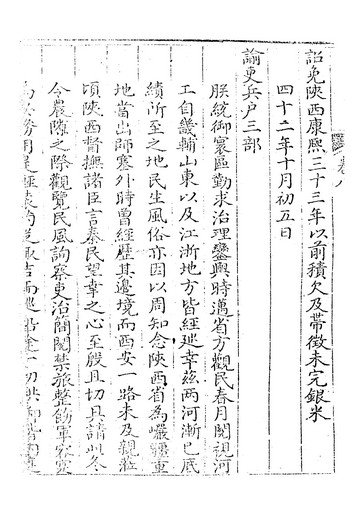 詔免陝西康熙三十三年以前積欠及帶徵未完銀米
四十二年十月初五日
諭吏兵戶三部
朕統御寰區勤求治理鑾輿時邁省方觀民春月閱視河
工自畿輔山東以及江浙地方皆經巡幸茲兩河漸已底
績所至之地民生風俗亦因以周知念陝西省為巖疆重
地當出師塞外時曾經歷其邊境而西安一路未及親蒞
頃陝西督撫諸臣言秦民望幸之心至殷且切具請以冬
今農隙之際觀覽民風詢察吏治簡閱禁旅整飭軍容寔
為
卷八